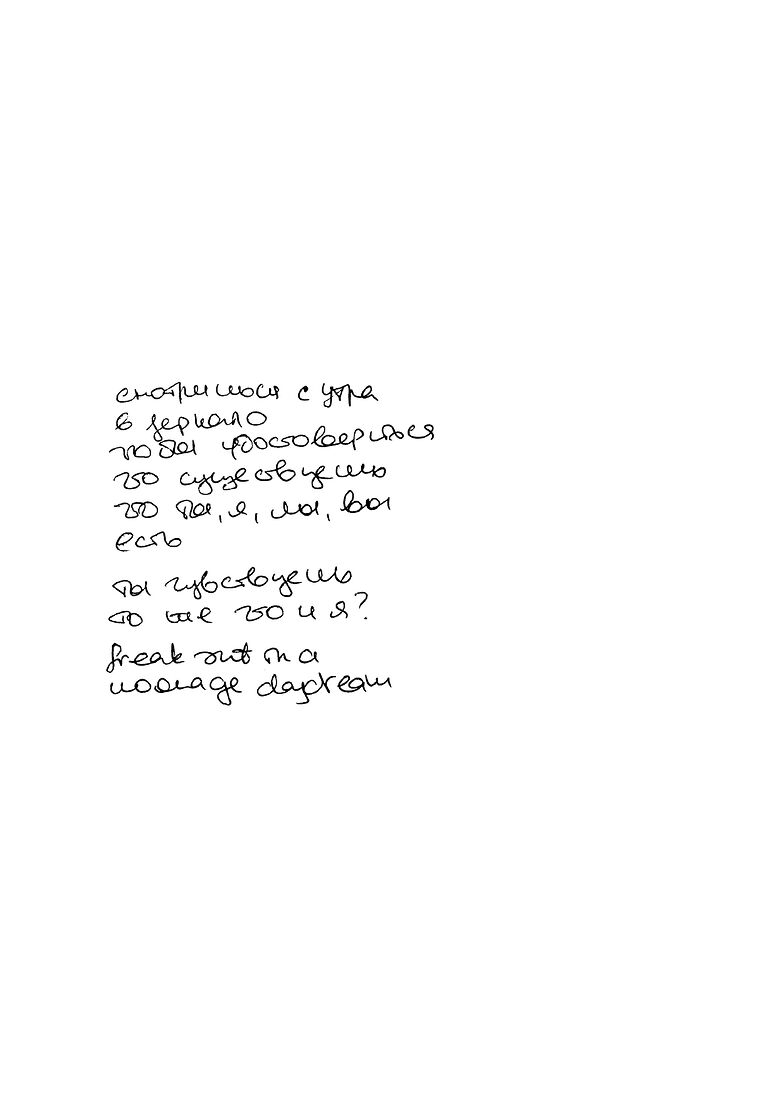 смотришься с утра
в зеркало
чтобы удостовериться
что существуешь
что ты, я, мы, вы
есть
ты чувствуешь
то же что и я?
freak out in a
moonage daydream